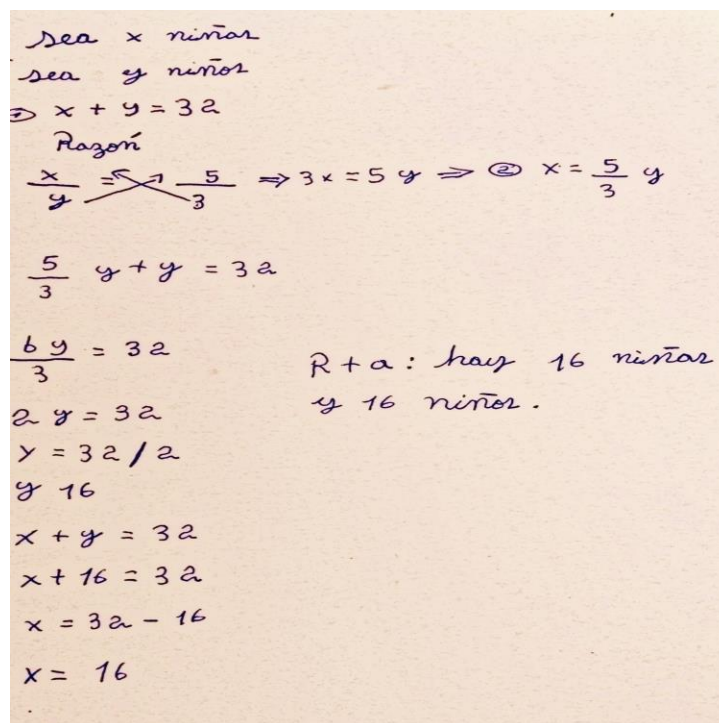 sea x niñas
sea y niños
① x + y = 32
Razón
x/y = 5/3 ⇒ 3x = 5y ⇒ ② x = 5/3 y
5/3 y + y = 32
6y/3 = 32
2y = 32
y = 32/2
y 16
x + y = 32
x + 16 = 32
x = 32 - 16
x = 16
R+a: hay 16 niñas
y 16 niños.